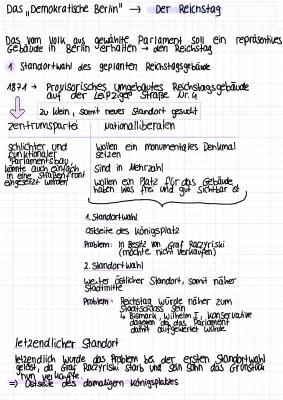 Das "Demokratische Berlin" → Der Reichstag
Das vom Volk aus gewählte Parlament soll ein repräsentives
Gebäude in Berlin erhalten → den Reichstag
1 Standortwahl des geplanten Reichstagsgebäude
1871 → Provisorisches umgebautes Reichstagsgebäude
auf der Leipziger Straße Nr. 4
↳ zu klein, somit neues Standort gesucht
Zentrumspartei Nationalliberalen
schlichter und
funktionaler
Parlamentsbau
könnte auch einfach
in eine Straßenfront
eingesetzt werden
Wollen ein monumentales Denkmal
setzen
Sind in Mehrzahl
Wollen ein Platz für das Gebäude,
haben was frei und gut sichtbar ist
1. Standortwahl
Ostseite des Königsplatz
Problem: In Besitz von Graf Raczyriski
(möchte nicht verkaufen)
2. Standortwahl
weiter östlicher Standort, somit näher
Stadtmitte
Problem: Reichstag würde näher zum
Stadtschloss sein
↳ Bismark, Wilhelm I, Konservative
dagegen da das Parlament
damit aufgewertet würde
letzendlicher Standort
letzendlich wurde das Problem bei der ersten Standortwahl
gelöst, da Graf Raczyriski starb und sein Sohn das Grundstück
nun verkaufte.
⇒ Ostseite des damaligen Königsplatzes